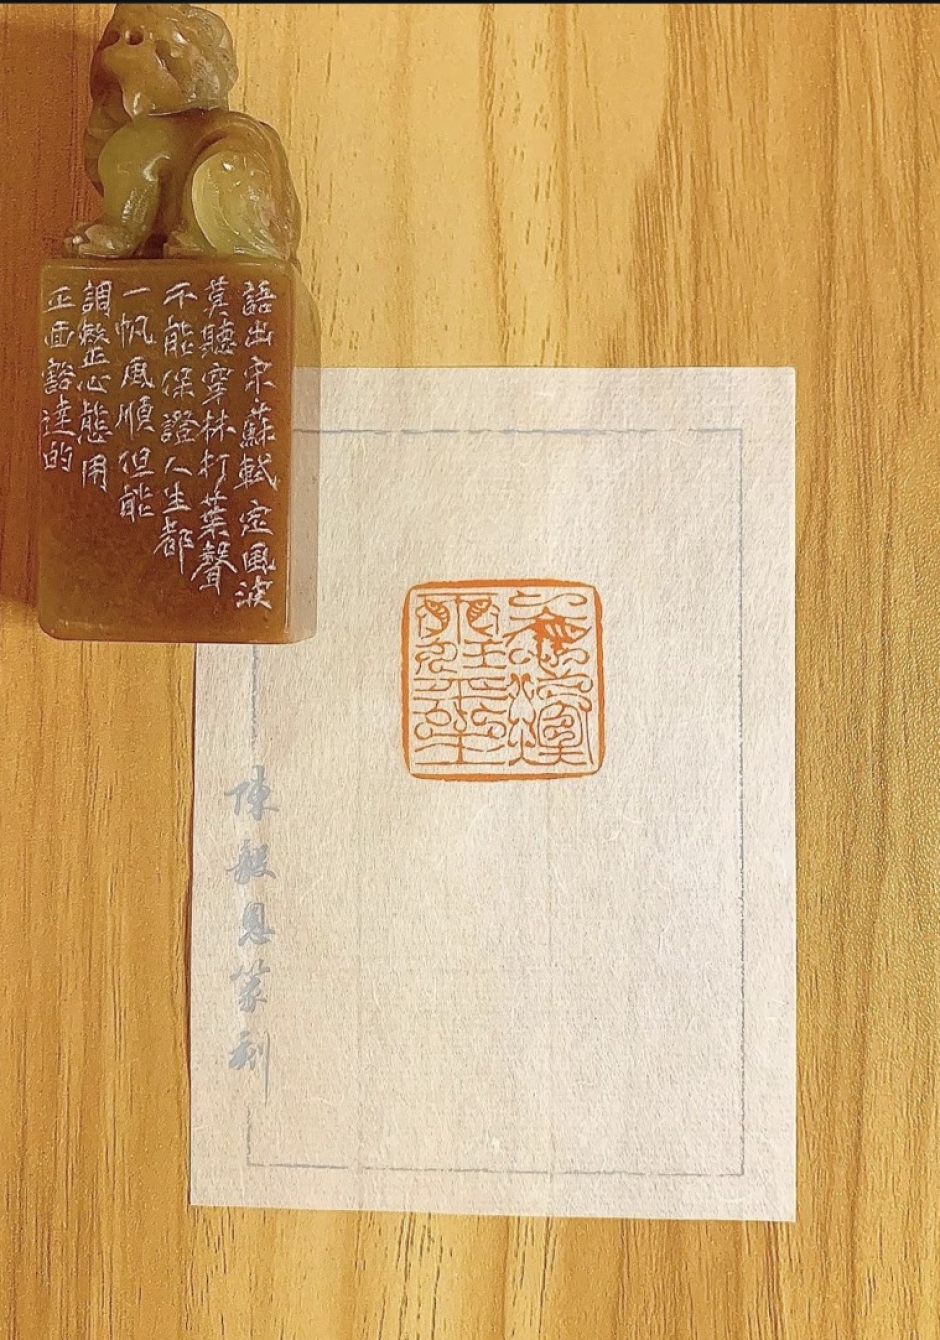 語出宋蘇軾定風波
莫聽穿林打葉聲
不能保證人生都
一帆風順但能
調整心態用
正面豁達的
一蓑煙
雨任平生
陳毅恩篆刻